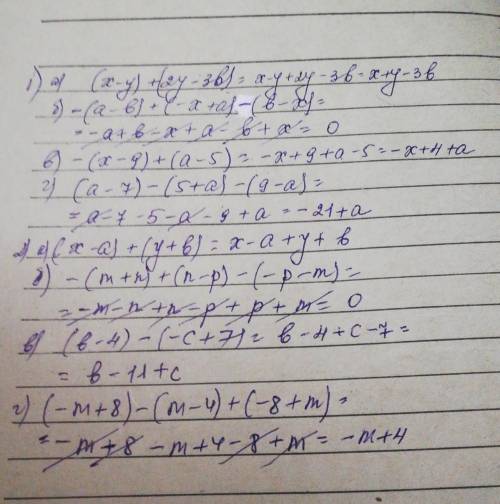 1) а) (x-y)+(2y-3в)= x-y+2y-3в=x+y-3в
б) -(а-в)+(-x+а)-(в-x)=
= -а+в-x+а-в+x= 0
в) -(x-9)+(а-5)= -x+9+а-5=-x+4+а
г) (а-7)-(5+а)-(9-а)=
= а-7-5-а-9+а=-21+а
2) а) (x-а)+(y+в)= x-а+y+в
б) -(m+n)+(n-p)-(-p-m)=
= -m-n+n-p+p+m= 0
в) (в-4)-(-с+7)= в-4+с-7=
= в-11+с
г) (-m+8)-(m-4)+(-8+m)=
= -m+8-m+4-8+m= -m+4